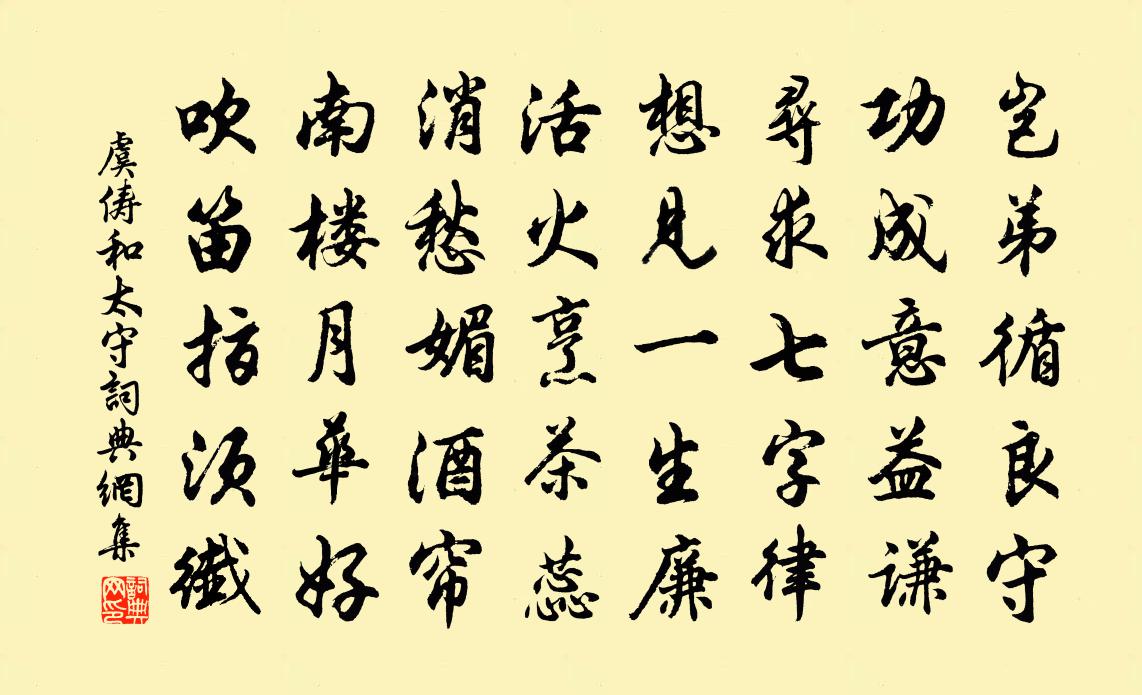 岂弟循良守
功成意益谦
寻求七字律
想见一生廉
活火烹茶蕊
消愁媚酒帘
南楼月华好
吹笛指须纤
虞俦和太守詞典網集
詞典网印